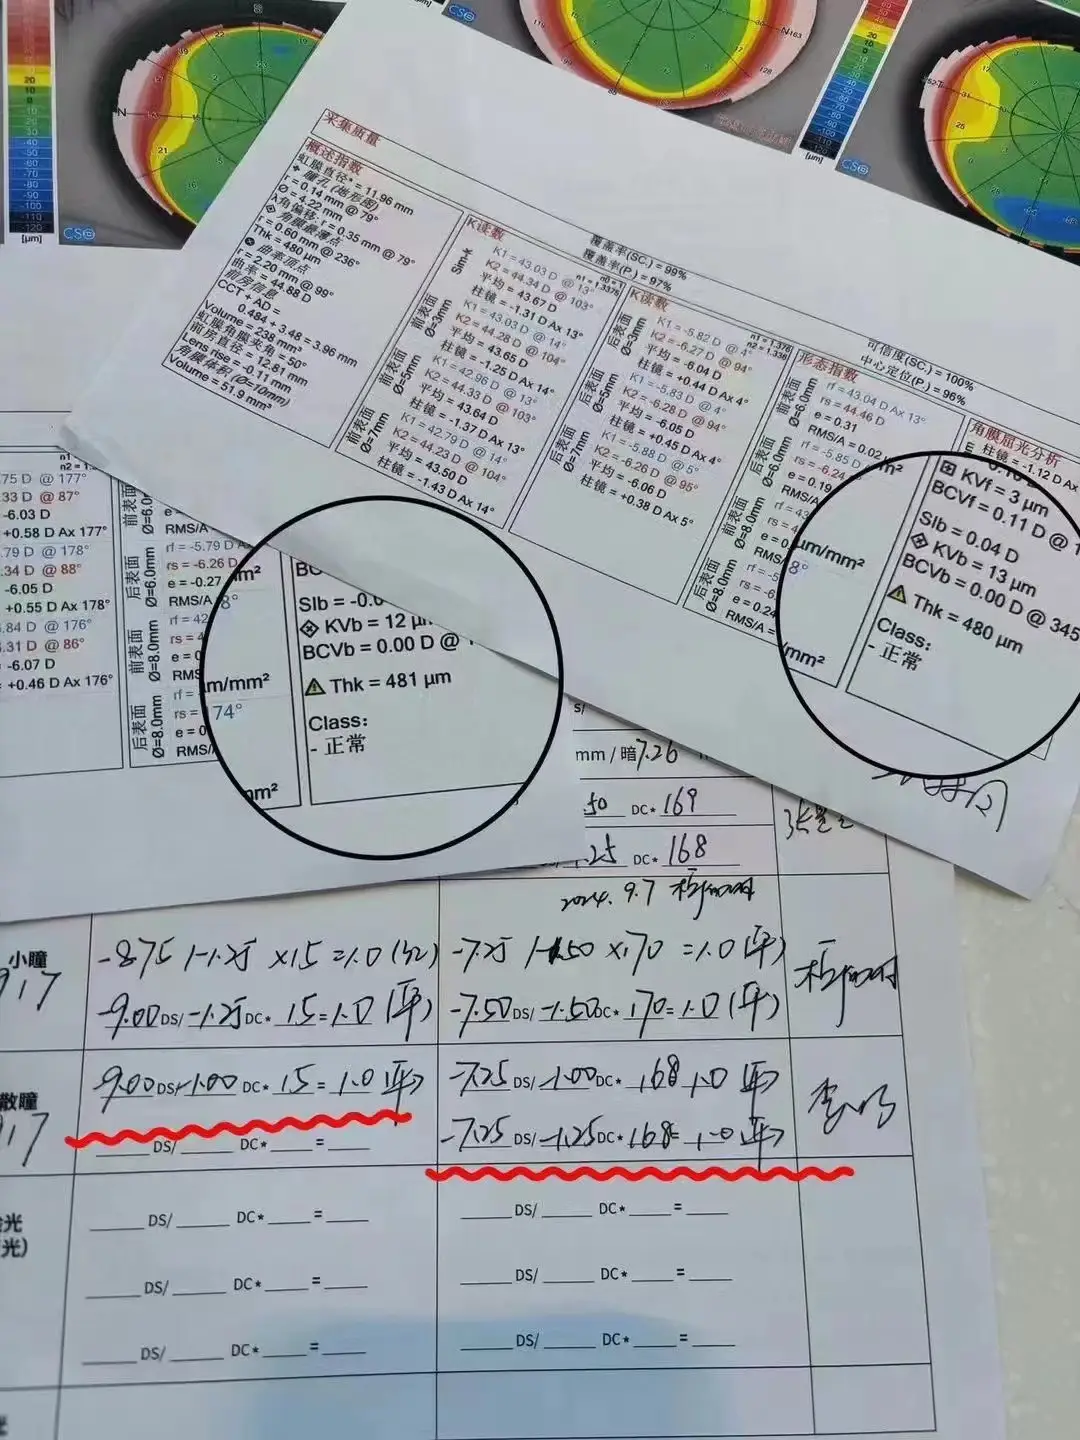 CSO
CSO
CSO
采集质量
概述指数
虹膜直径* = 11.96 mm
瞳孔 (地形图)
r = 0.14 mm @ 79°
Ø = 4.22 mm
λ角偏移: r = 0.35 mm @ 79°
角膜最薄点
r = 0.60 mm @ 236°
Thk = 480 μm
曲率顶点
r = 2.20 mm @ 99°
曲率 = 44.88 D
前房信息
CCT + AD =
0.484 + 3.48 = 3.96 mm
Volume = 238 mm³
虹膜角膜夹角 = 50°
前房直径 = 12.81 mm
Lens rise = -0.11 mm
角膜体积 (Ø=10mm)
Volume = 51.9 mm³
覆盖率(SC.) = 99%
覆盖率(P.) = 97%
可信度(SC.) = 100%
中心定位(P.) = 96%
K读数
Sim-k
K1 = 43.03 D @ 13°
K2 = 44.34 D @ 103°
平均 = 43.67 D
柱镜 = -1.31 D Ax 13°
前表面 Ø=3mm
K1 = 43.03 D @ 14°
K2 = 44.28 D @ 104°
平均 = 43.65 D
柱镜 = -1.25 D Ax 14°
前表面 Ø=5mm
K1 = 42.96 D @ 13°
K2 = 44.33 D @ 103°
平均 = 43.64 D
柱镜 = -1.37 D Ax 13°
前表面 Ø=7mm
K1 = 42.79 D @ 14°
K2 = 44.23 D @ 104°
平均 = 43.50 D
柱镜 = -1.43 D Ax 14°
K读数
后表面 Ø=3mm
K1 = -5.82 D @ 4°
K2 = -6.27 D @ 94°
平均 = -6.04 D
柱镜 = +0.44 D Ax 4°
后表面 Ø=5mm
K1 = -5.83 D @ 4°
K2 = -6.28 D @ 94°
平均 = -6.05 D
柱镜 = +0.45 D Ax 4°
后表面 Ø=7mm
K1 = -5.88 D @ 5°
K2 = -6.26 D @ 95°
平均 = -6.06 D
柱镜 = +0.38 D Ax 5°
形态指数
前表面 Ø=6.0mm
rf = 43.04 D Ax 13°
rs = 44.46 D
e = 0.31
RMS/A = 0.02
后表面 Ø=6.0mm
rf = -5.85 D
rs = -6.24
e = 0.19
RMS/A
前表面 Ø=8.0mm
后表面 Ø=8.0mm
e = 0.24
RMS/A =
角膜屈光分析
柱镜 = -1.12 D Ax
KVf = 3 μm
BCVf = 0.11 D @ 1
Slb = 0.04 D
KVb = 13 μm
BCVb = 0.00 D @ 345
Thk = 480 μm
Class:
- 正常
μm/mm²
8°
/mm²
.75 D @ 177°
.33 D @ 87°
-6.03 D
+0.58 D Ax 177°
.79 D @ 178°
.34 D @ 88°
-6.05 D
+0.55 D Ax 178°
.84 D @ 176°
.31 D @ 86°
-6.07 D
+0.46 D Ax 176°
前表面 Ø=6.0
RMS/A
后表面 Ø=6.0mm
rf = -5.79 D
rs = -6.26 D
e = -0.27
RMS/A
前表面 Ø=8.0mm
rf = 42
rs = 4
e = 0
RMS
后表面 Ø=8.0mm
rf =
rs =
e = 0
RMS/
m²
8°
m/mm²
74°
mm²
BC
Slb = -0.0
KVb = 12 μm
BCVb = 0.00 D @
Thk = 481 μm
Class:
- 正常
mm / 暗 7.26
.50 DC* 169
.25 DC* 168
2024.9.7
小瞳
-8.75 /-1.25 ×15 =1.0 -7.25 /-1.50 ×170 =1.0 (平)
-9.00 DS/ -1.25 DC* 15 = 1.0 (平) -7.50 DS/ -1.50 DC* 170 = 1.0 (平)
散瞳
-9.00 DS/ -1.00 DC* 15 = 1.0 平 -7.25 DS/ -1.00 DC* 168 1.0 平
DS/ DC* = -7.25 DS/ -1.25 DC* 168 = 1.0 平
光
光)
DS/ DC* = DS/ DC* =
DS/ DC* = DS/ DC* =
DS/ DC* = DS/ DC* =